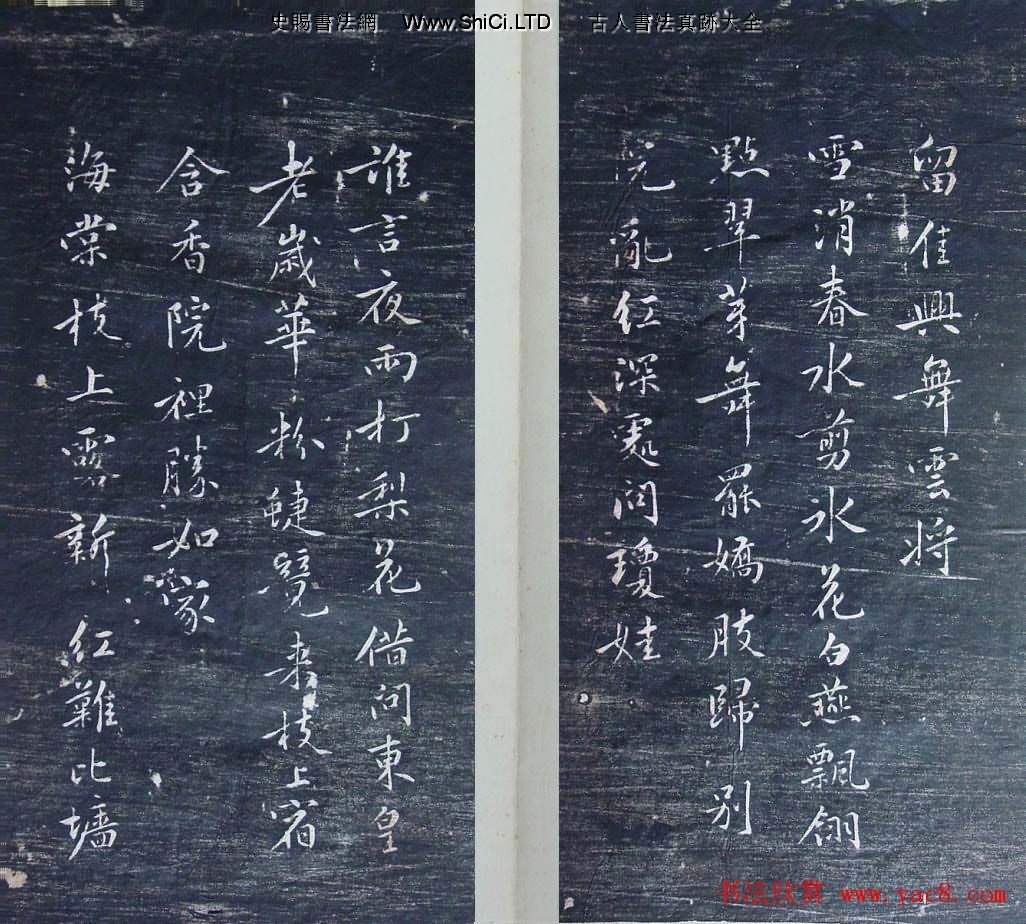 史賜書法網 Www.ShiCi.LTD 古人書法真跡大全
留佳興舞雲將
雪消春水剪冰花白燕飄翎
點翠芽舞罷嬌肢歸別
院亂紅深處悶瓊娃
誰言夜雨打梨花借問東皇
老歲華粉蜨覓来枝上宿
含香院裡勝如家
海棠枝上露新紅難比墻
书法欣赏 www.yac8.com